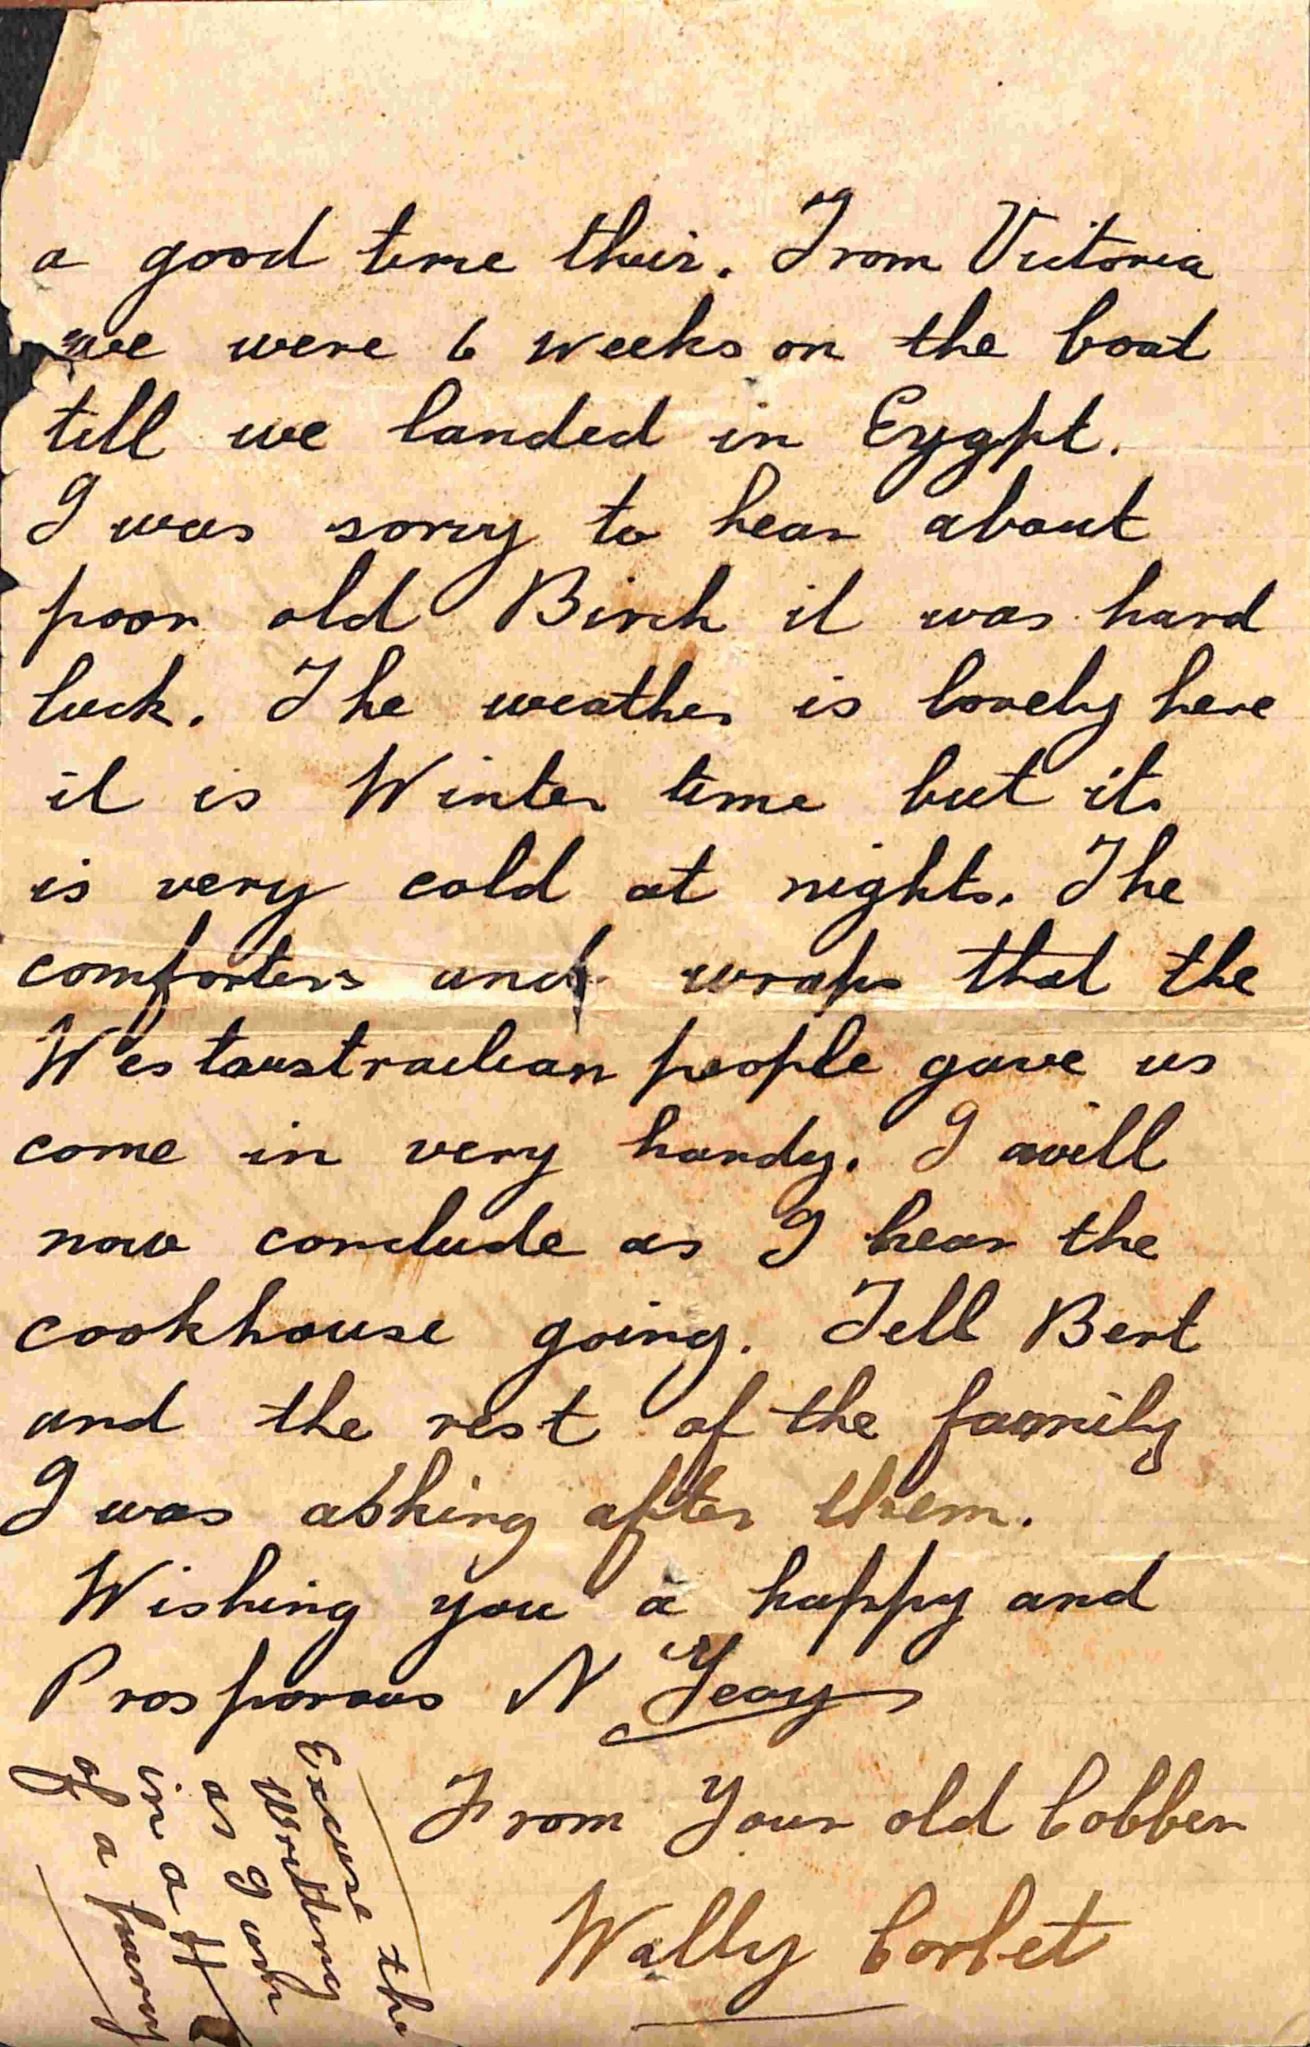 a good time their. From Victoria
we were 6 weeks on the boat
till we landed in Eygpt.
I was sorry to hear about
poor old Birch it was hard
luck. The weather is lovely here
it is Winter time but it
is very cold at nights. The
comforters and wraps that the
Westaustralian people gave us
come in very handy. I will
now conclude as I hear the
cookhouse going. Tell Bert
and the rest of the family
I was asking after them.
Wishing you a happy and
Prosporous N Year
From Your old Cobber
Wally Corbet
Excuse the
Writting
as I am
in a H
of a furry